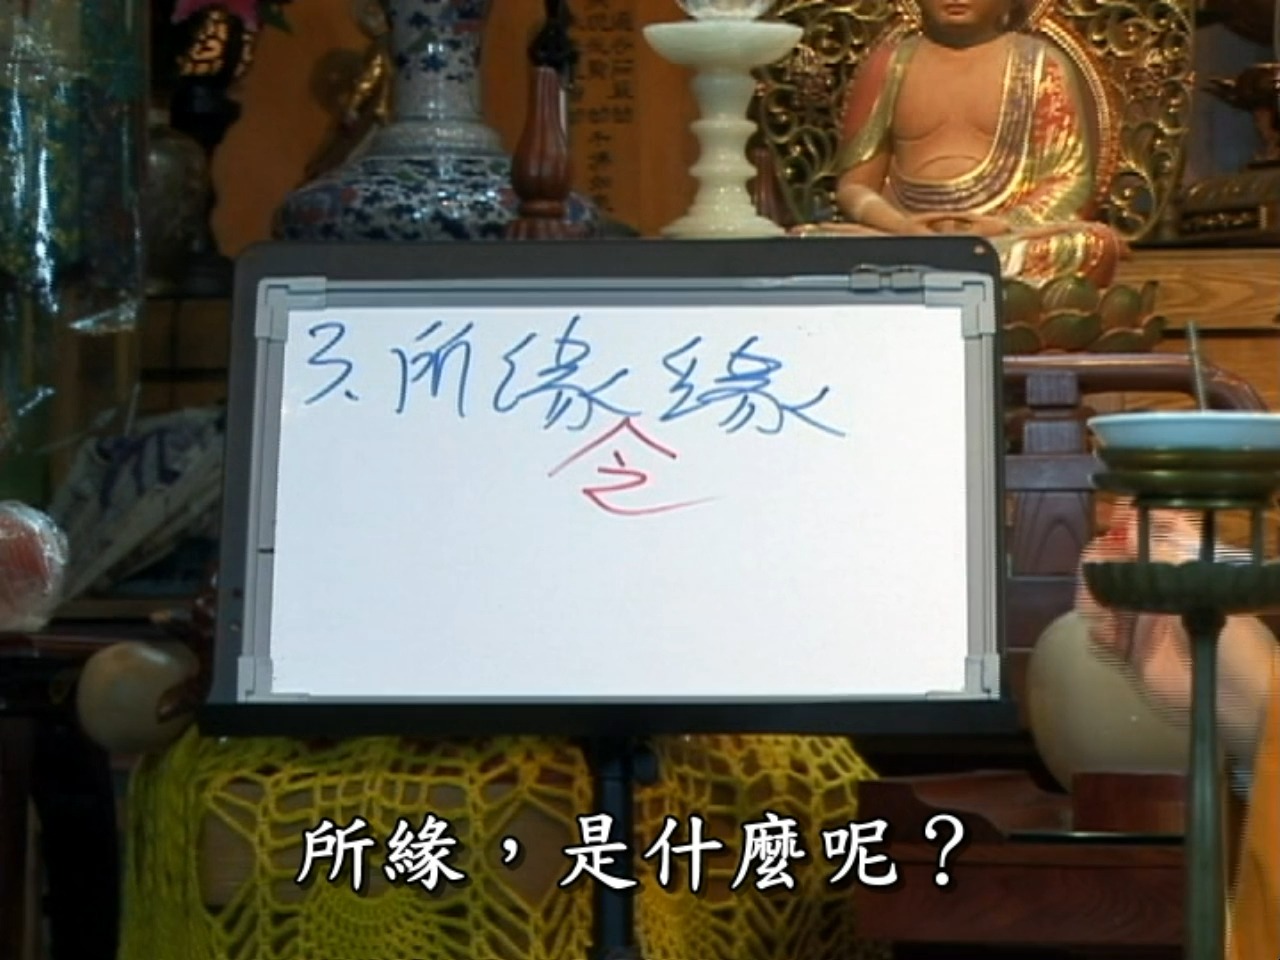 3、所緣緣
之
所緣，是什麼呢？